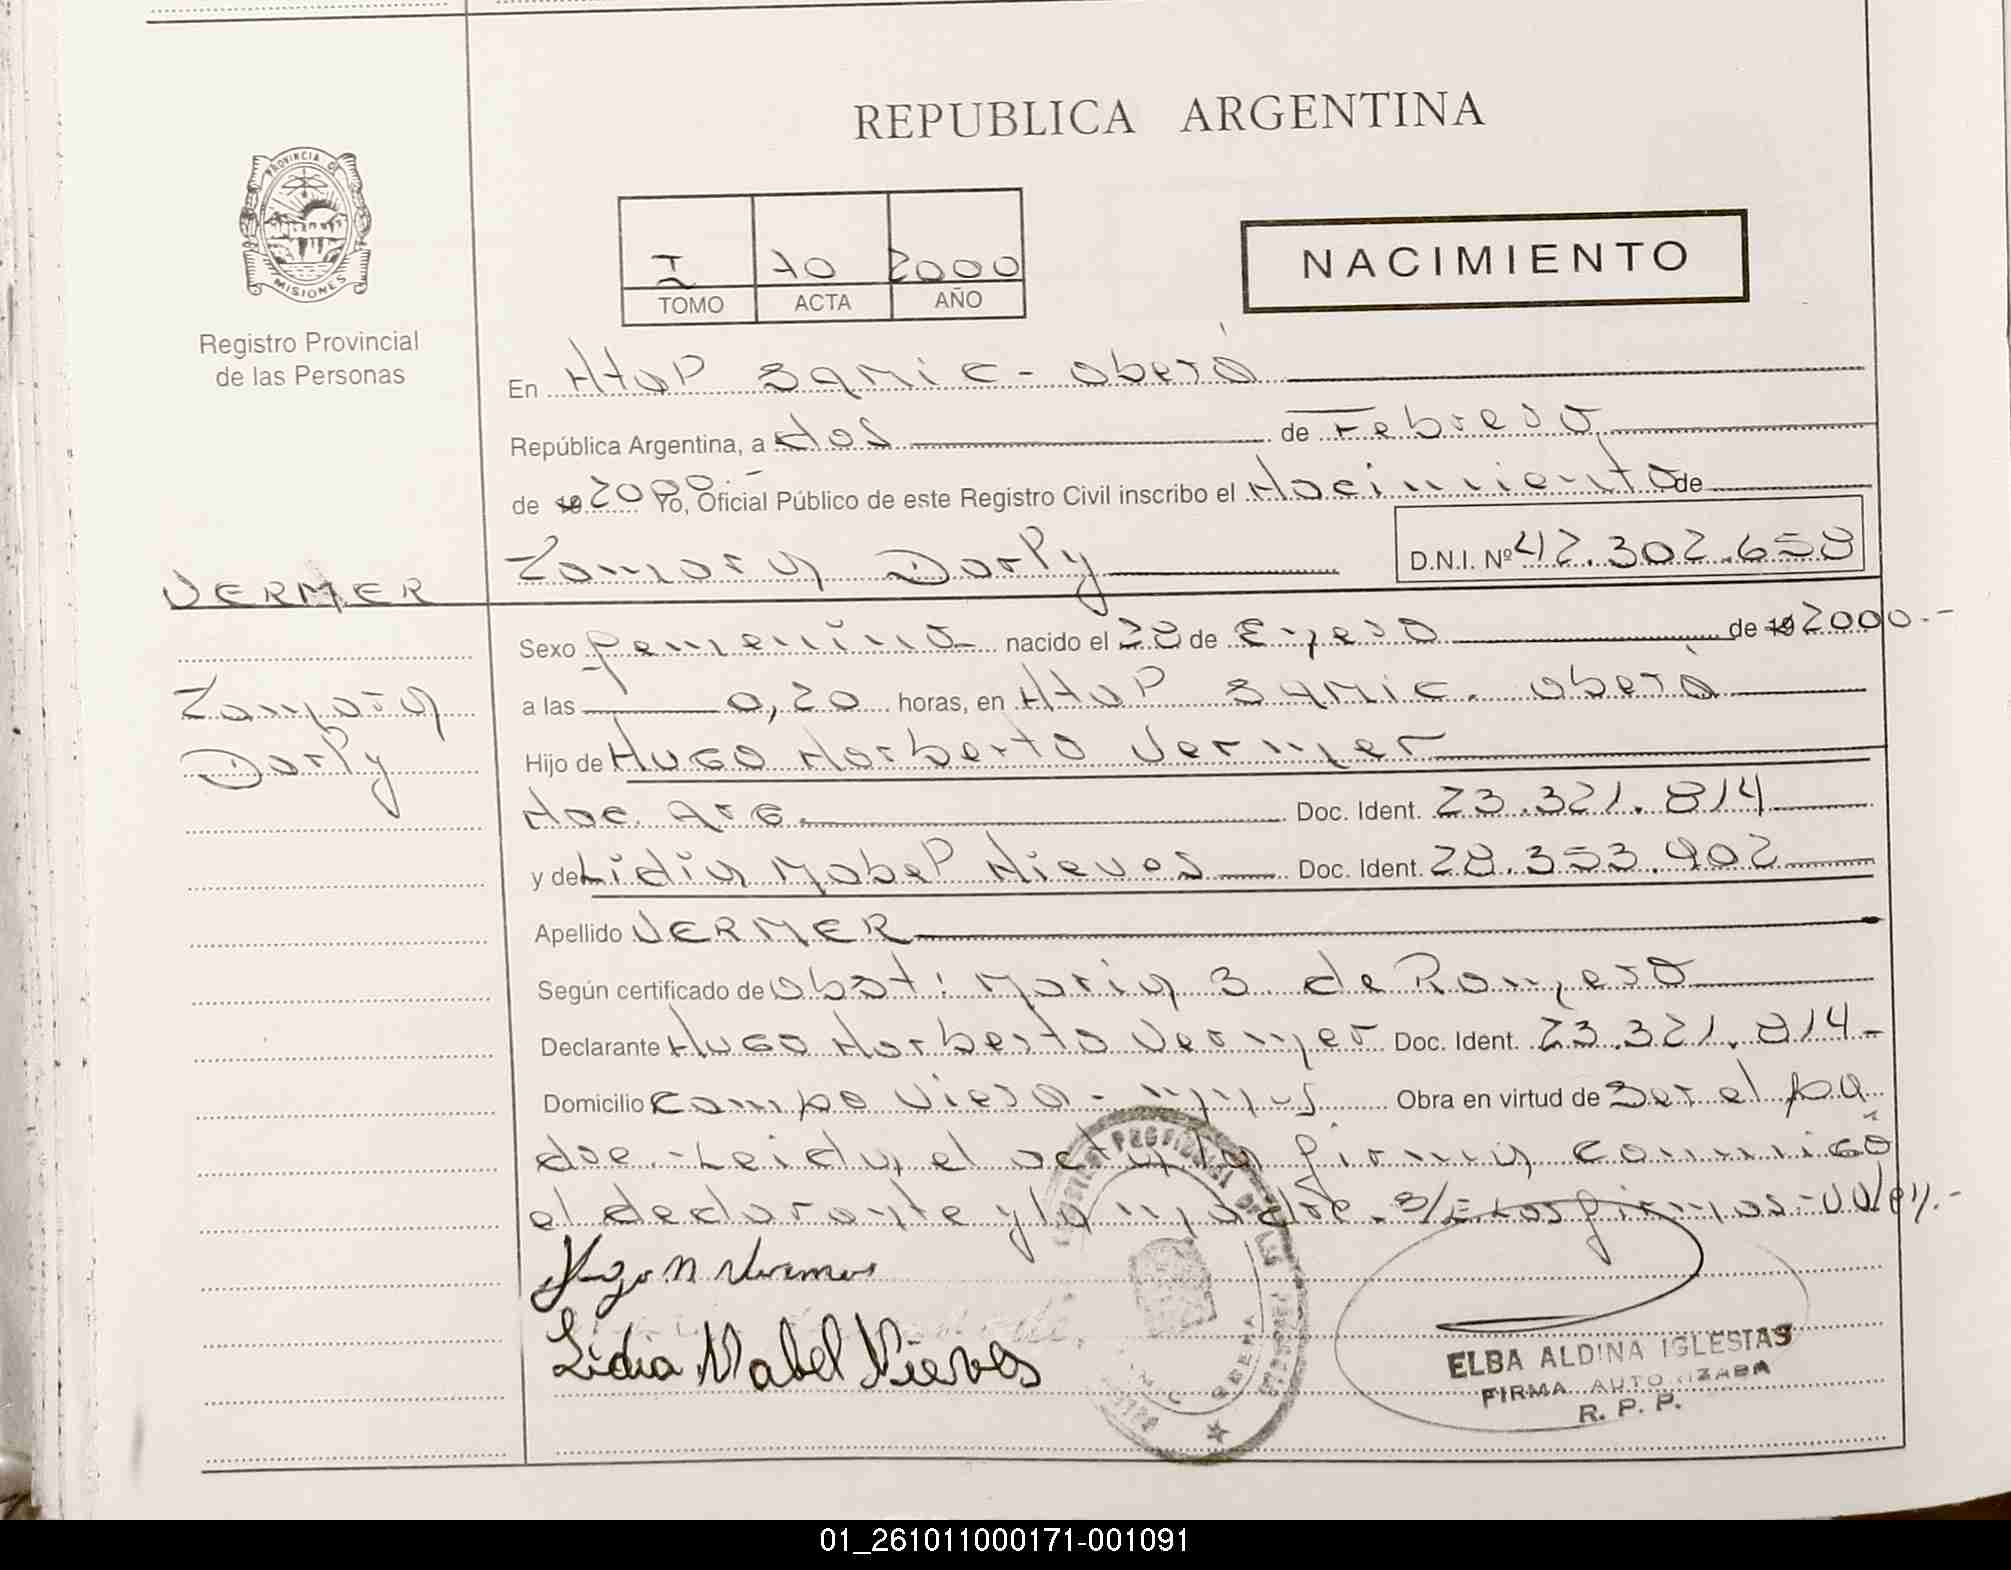 REPUBLICA ARGENTINA
PROVINCIA DE
MISIONES
Registro Provincial
de las Personas
I 70 2000
TOMO ACTA AÑO
NACIMIENTO
En Htal Samic - Oberá
República Argentina, a dos de Febrero
de 19 2000.- Yo, Oficial Público de este Registro Civil inscribo el Nacimiento de
Zamara Darly D.N.I. Nº 42.302.658
VERMER
Zamara
Darly
Sexo femenino nacido el 28 de Enero de 19 2000.-
a las 0,20 horas, en Htal Samic. Oberá
Hijo de Hugo Norberto Vermer
Nac. Arg. Doc. Ident. 23.321.814
y de Lidia Mabel Nieves Doc. Ident. 28.353.902
Apellido VERMER
Según certificado de Obst: Maria S. de Romero
Declarante Hugo Norberto Vermer Doc. Ident. 23.321.814.-
Domicilio Campo Viera - Mnes Obra en virtud de Ser el pa
dre.- Leida el acta la firma conmigo
el declarante y la madre. S/E Las firmas - Vale.-
Hugo N Vermer
Lidia Mabel Nieves
ELBA ALDINA IGLESIAS
FIRMA AUTORIZADA
R. P. P.
01_261011000171-001091